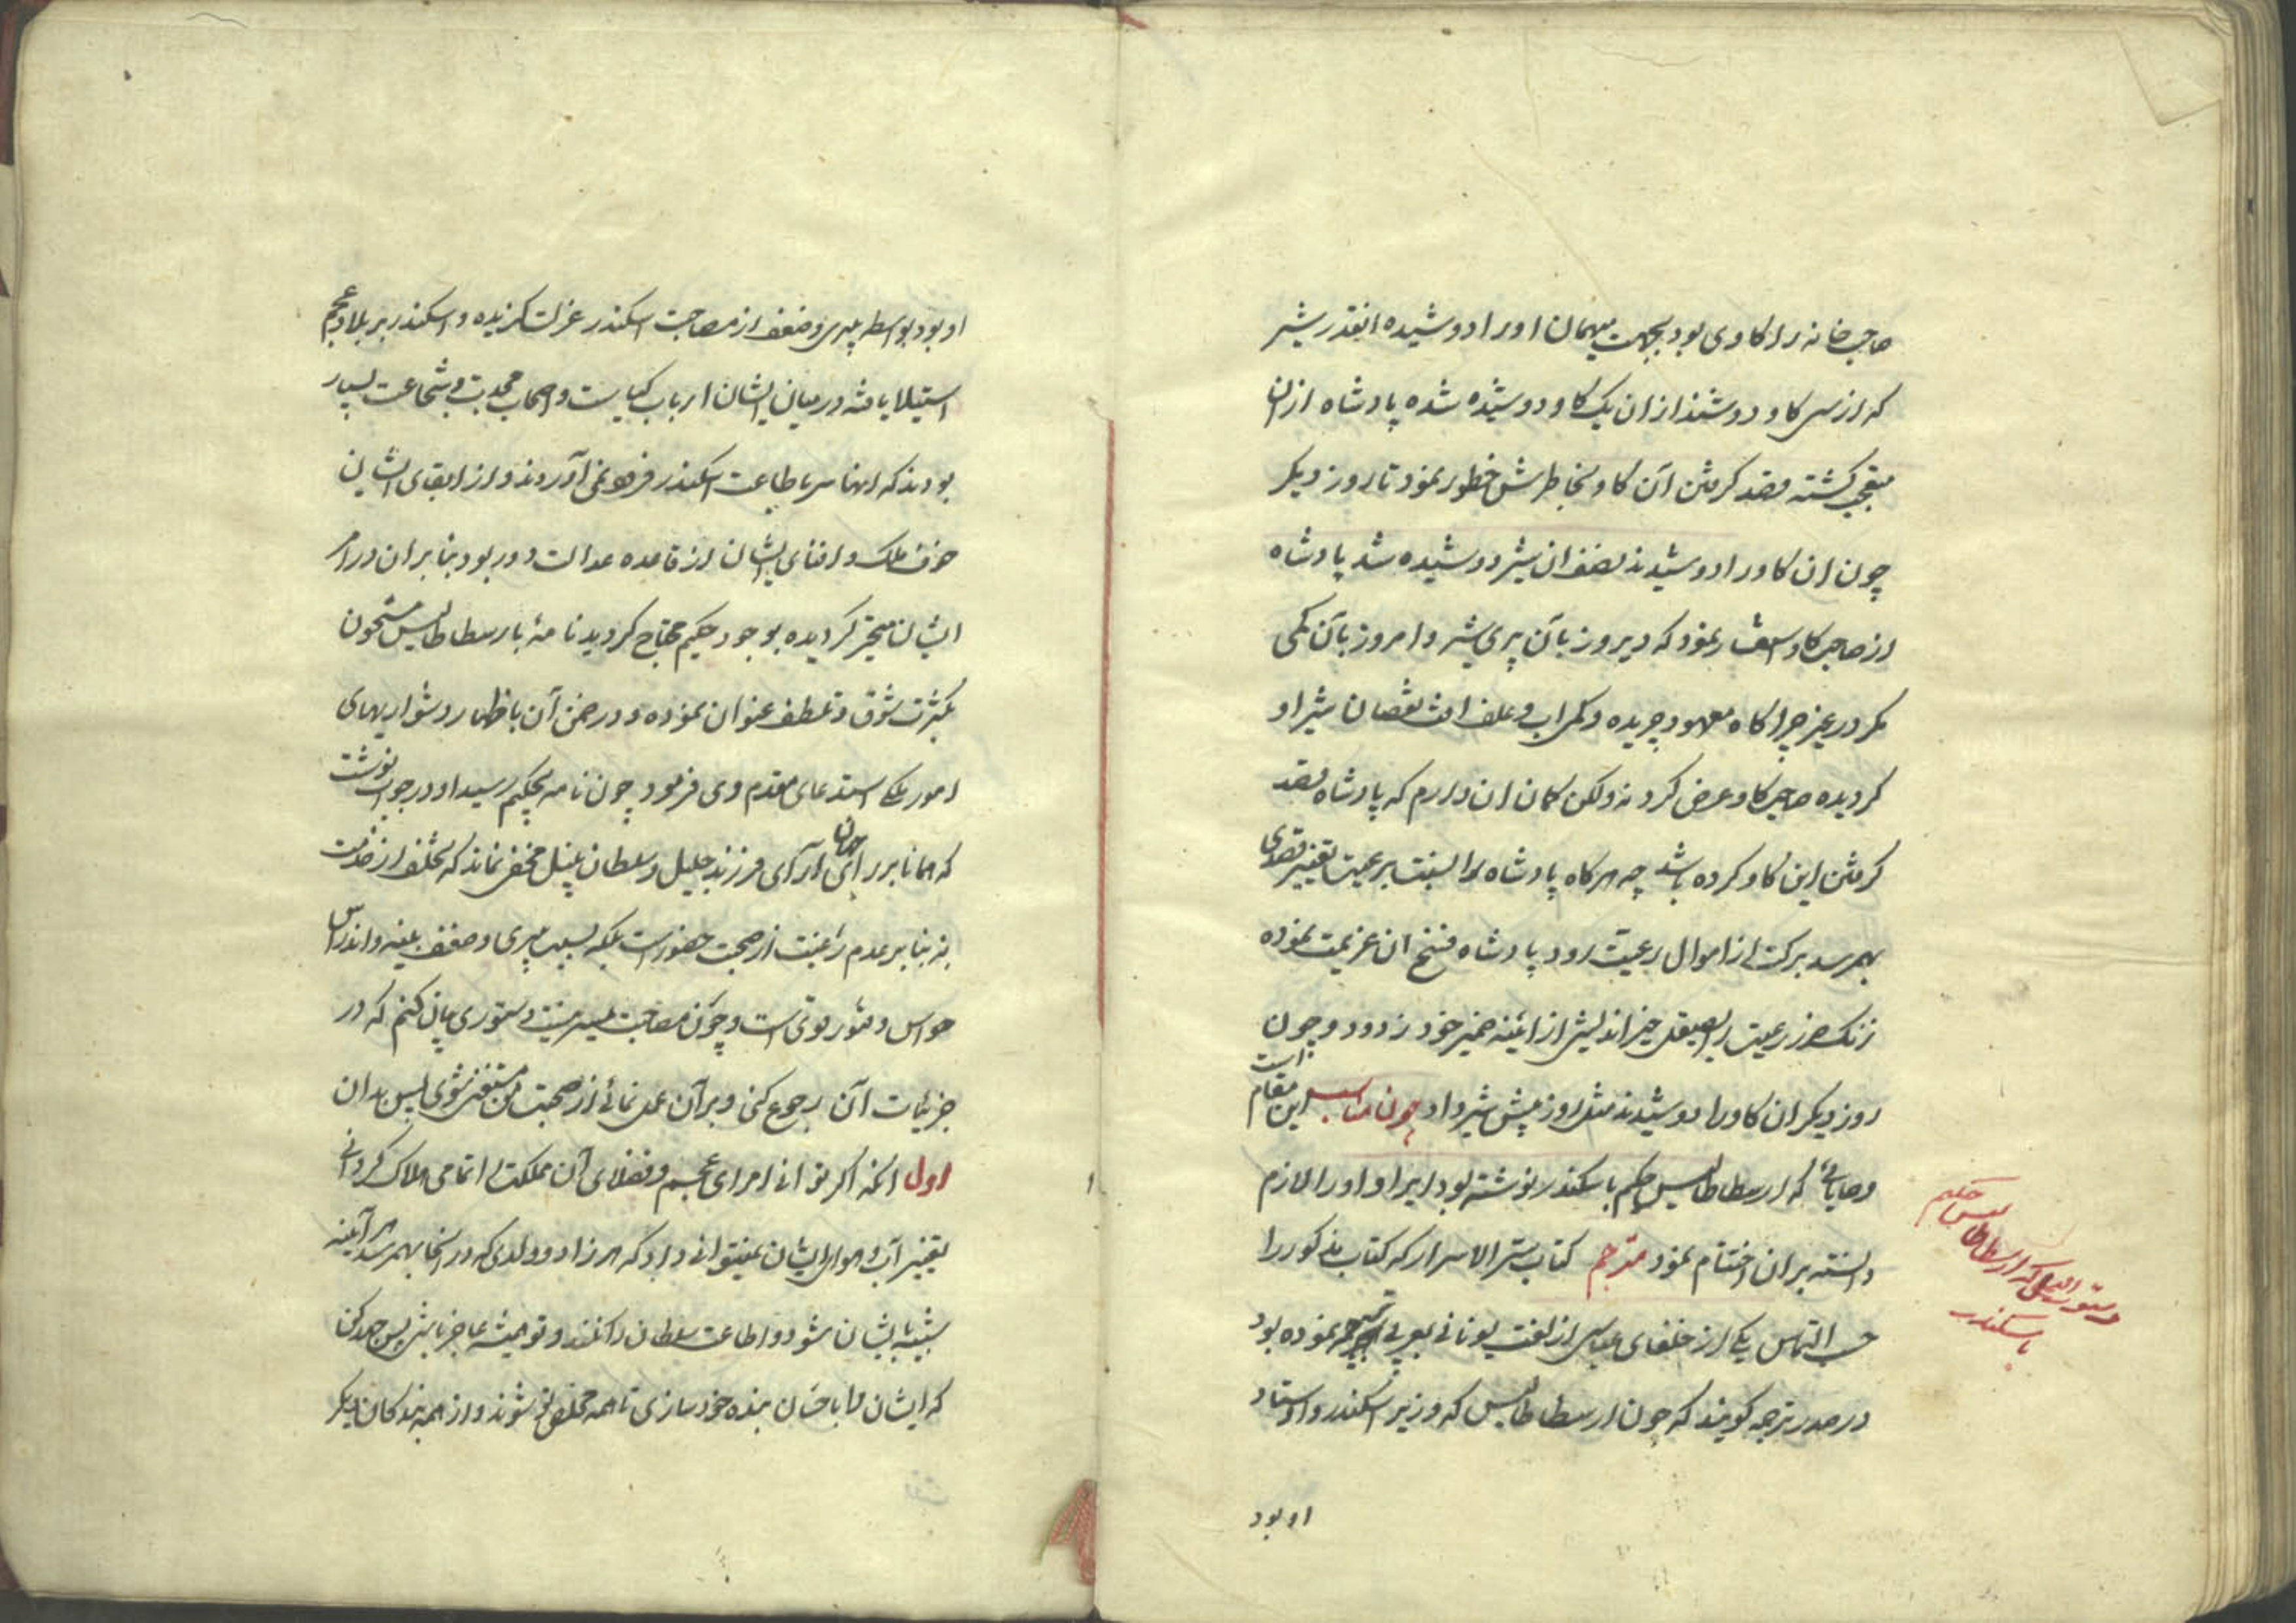 صاحب خانه را كاوى بود بجهت میهمان او را دوشیده انقدر شیر
كه از سى كاو دوشند از ان یك كاو دوشیده شده پادشاه ازان
متعجب كشته قصد كرفتن آن كاو بخاطرش خطور نمود تا روز دیكر
چون ان كاو را دوشیدند نصف ان شیر دوشیده شد پادشاه
از صاحب كاو استفسار نمود كه دیروز بآن پرى شیر و امروز بآن كمى
مكر در غیر چراكاه معهود چریده و كم اب و علف نقصان شیر او
كردیده صاحب كاو عرض كرد نه ولكن كمان ان دارم كه پادشاه قصد
كرفتن این كاو كرده باشد چه هر كاه پادشاه را نسبت برعیت تغییر قصدى
بهمرسد بركت از اموال رعیت رود پادشاه فسخ ان عزیمت نموده
زنك ضرر رعیت را بصیقل خیر اندیشى از ائینه ضمیر خود زدود و چون
روز دیكر ان كاو را دوشیدند مثل روز پیش شیر داد چون مناسب این مقام است
وصایائى كه ارسطاطالیس حكیم باسكندر نوشته بود ایراد او را لازم
دانسته بران اختتام نمود مترجم كتاب سر الاسرار كه كتاب مذكور را
حسب التماس یكى از خلفاى عباسى از لغت یونانى بعربى ترجمه نموده بود
در صدر ترجمه كویند كه چون ارسطاطالیس كه وزیر اسكندر و اوستاد
او بود
دستور العملى كه ارسطاطالیس حكیم
باسكندر
او بود بواسطه پیرى و ضعف از مصاحبت اسكندر عزلت كزیده و اسكندر بر بلاد عجم
استیلا یافته در میان ایشان ارباب كیاست و اصحاب و شجاعت بسیار
بودند كه انها سر باطاعت اسكندر فرو نمى آوردند و از ابقاى ایشان
خوف ملك و افناى ایشان از قاعده عدالت دور بود بنابران در امر
ایشان متحیر كردیده بوجود حكیم محتاج كردید نامهٔ بارسطاطالیس مشحون
بكثرت شوق و تعطف عنوان نموده و در ضمن آن باظهار دشواریهاى
امور ملكى استدعاى مقدم وى فرمود چون نامه بحكیم رسید او در جواب نوشت
كه همانا بر راى جهان آراى فرزند جلیل و سلطان نبیل مخفى نماند كه تخلف از خدمت
نه بنابر عدم رغبت از صحبت حضور است بلكه بسبب پیرى و ضعف بنیه و اندراس
حواس و فتور قوتى است و چون مصاحبت میسر نیست دستورى بیان كنم كه در
جزئیات آن رجوع كنى و برآن عمل نمائى از صحبت من مستغنى شوى پس بدان
اول انكه اكر توانى امراى عجم و فضلاى آن مملكت را تمامى هلاك كردانى
تغییر آب و هواى ایشان نمیتوانى داد كه هر زاد و ولدى كه در انجا بهمرسد هر آئینه
شبیه بایشان شود و اطاعت سلطان را نكنند و تو همیشه عاجز باشى پس جهد كن
كه ایشان را باحسان بنده خود سازى تا همه مخلص تو شوند و از همه بندكان دیكر